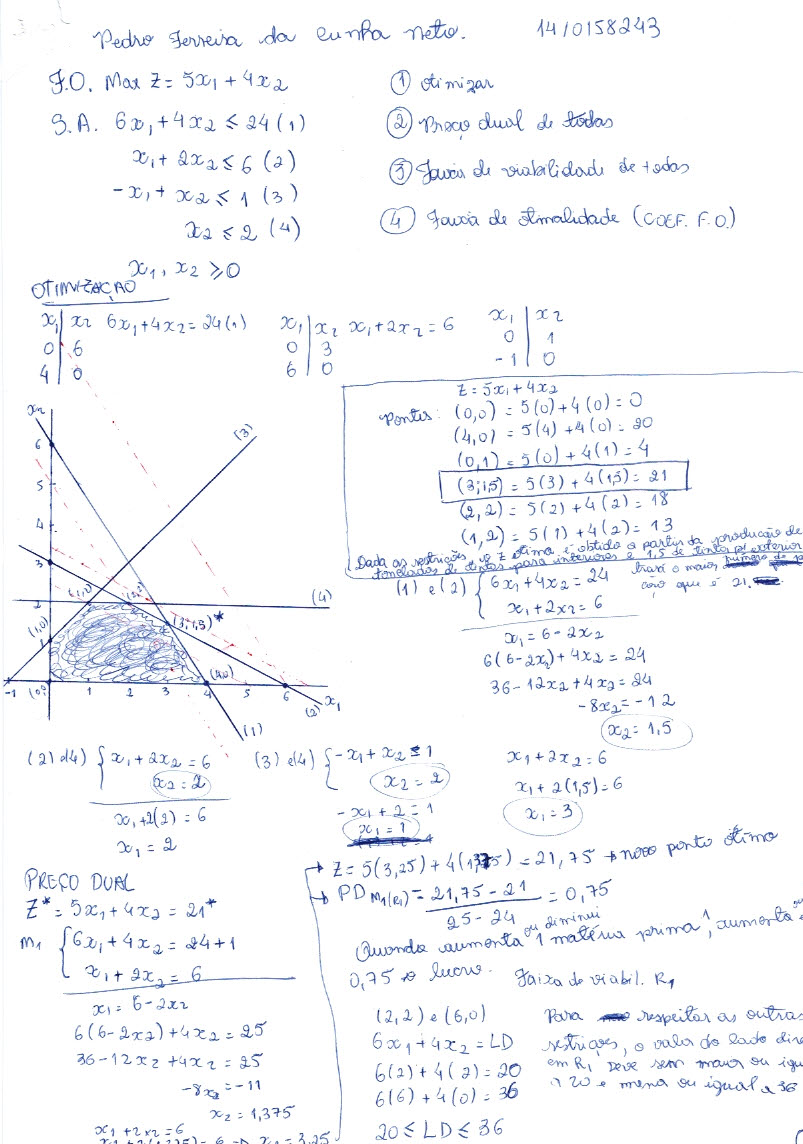 Pedro Ferreira da Cunha Neto. 14/0158243
F.O. Max Z = 5x₁ + 4x₂
S.A. 6x₁ + 4x₂ ≤ 24 (1)
x₁ + 2x₂ ≤ 6 (2)
-x₁ + x₂ ≤ 1 (3)
x₂ ≤ 2 (4)
x₁, x₂ ≥ 0
① otimizar
② Preço dual de todas
③ Faixa de viabilidade de todas
④ Faixa de otimalidade (COEF. F.O.)
OTIMIZAÇÃO
x₁ | x₂ 6x₁ + 4x₂ = 24 (1)
0 | 6
4 | 0
x₁ | x₂ x₁ + 2x₂ = 6
0 | 3
6 | 0
x₁ | x₂
0 | 1
-1 | 0
x₂
6
5
4
3
2
(3)
(4)
(1,2)
(2,2)
(3;1,5)*
(1,0)
(4,0)
(0,0)
-1 1 2 3 4 5 6 x₁
(2)
(1)
Z = 5x₁ + 4x₂
Pontos: (0,0) = 5(0) + 4(0) = 0
(4,0) = 5(4) + 4(0) = 20
(0,1) = 5(0) + 4(1) = 4
(3;1,5) = 5(3) + 4(1,5) = 21
(2,2) = 5(2) + 4(2) = 18
(1,2) = 5(1) + 4(2) = 13
Dada as restrições, o Z ótimo é obtido a partir da produção de
toneladas de tintas para interiores e 1,5 de tintas p/ exterior
trará o maior número de
que é 21.
(1) e (2) { 6x₁ + 4x₂ = 24
x₁ + 2x₂ = 6
x₁ = 6 - 2x₂
6(6-2x₂) + 4x₂ = 24
36 - 12x₂ + 4x₂ = 24
-8x₂ = -12
x₂ = 1,5
x₁ + 2x₂ = 6
x₁ + 2(1,5) = 6
x₁ = 3
(2) e (4) { x₁ + 2x₂ = 6
x₂ = 2
x₁ + 2(2) = 6
x₁ = 2
(3) e (4) { -x₁ + x₂ ≤ 1
x₂ = 2
-x₁ + 2 = 1
x₁ = 1
PREÇO DUAL
Z* = 5x₁ + 4x₂ = 21*
M₁ { 6x₁ + 4x₂ = 24+1
x₁ + 2x₂ = 6
x₁ = 6 - 2x₂
6(6-2x₂) + 4x₂ = 25
36 - 12x₂ + 4x₂ = 25
-8x₂ = -11
x₂ = 1,375
x₁ + 2x₂ = 6
x₁ = 3,25
Z = 5(3,25) + 4(1,375) = 21,75 → novo ponto ótimo
PD M₁(R₁) = 21,75 - 21 = 0,75
25 - 24
Quando aumenta ou diminui 1 matéria prima 1, aumenta
0,75 o lucro.
Faixa de viabil. R₁
(2,2) e (6,0)
6x₁ + 4x₂ = LD
6(2) + 4(2) = 20
6(6) + 4(0) = 36
20 ≤ LD ≤ 36
Para respeitar as outras
restrições, o valor do lado dire
em R₁ deve sem maior ou igu
a 20 e menor ou igual a 36